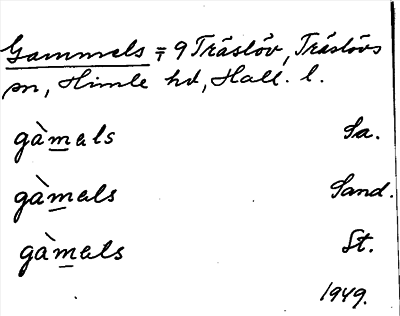 Gammels = 9 Träslöv, Träslövs
sn, Himle hd, Hall. l.
gàmals Sa.
gàmals Sand.
gàmals St.
1949.